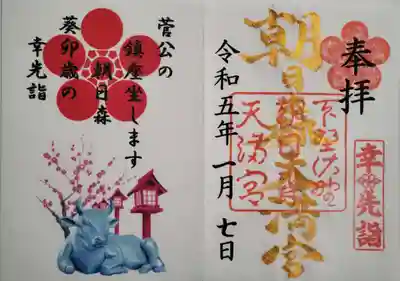 奉拝
幸先詣
朝日森天満宮
下野佐野
朝日森
天満宮
令和五年一月七日
菅公の
鎮座坐します
朝日森
癸卯歳の
幸先詣